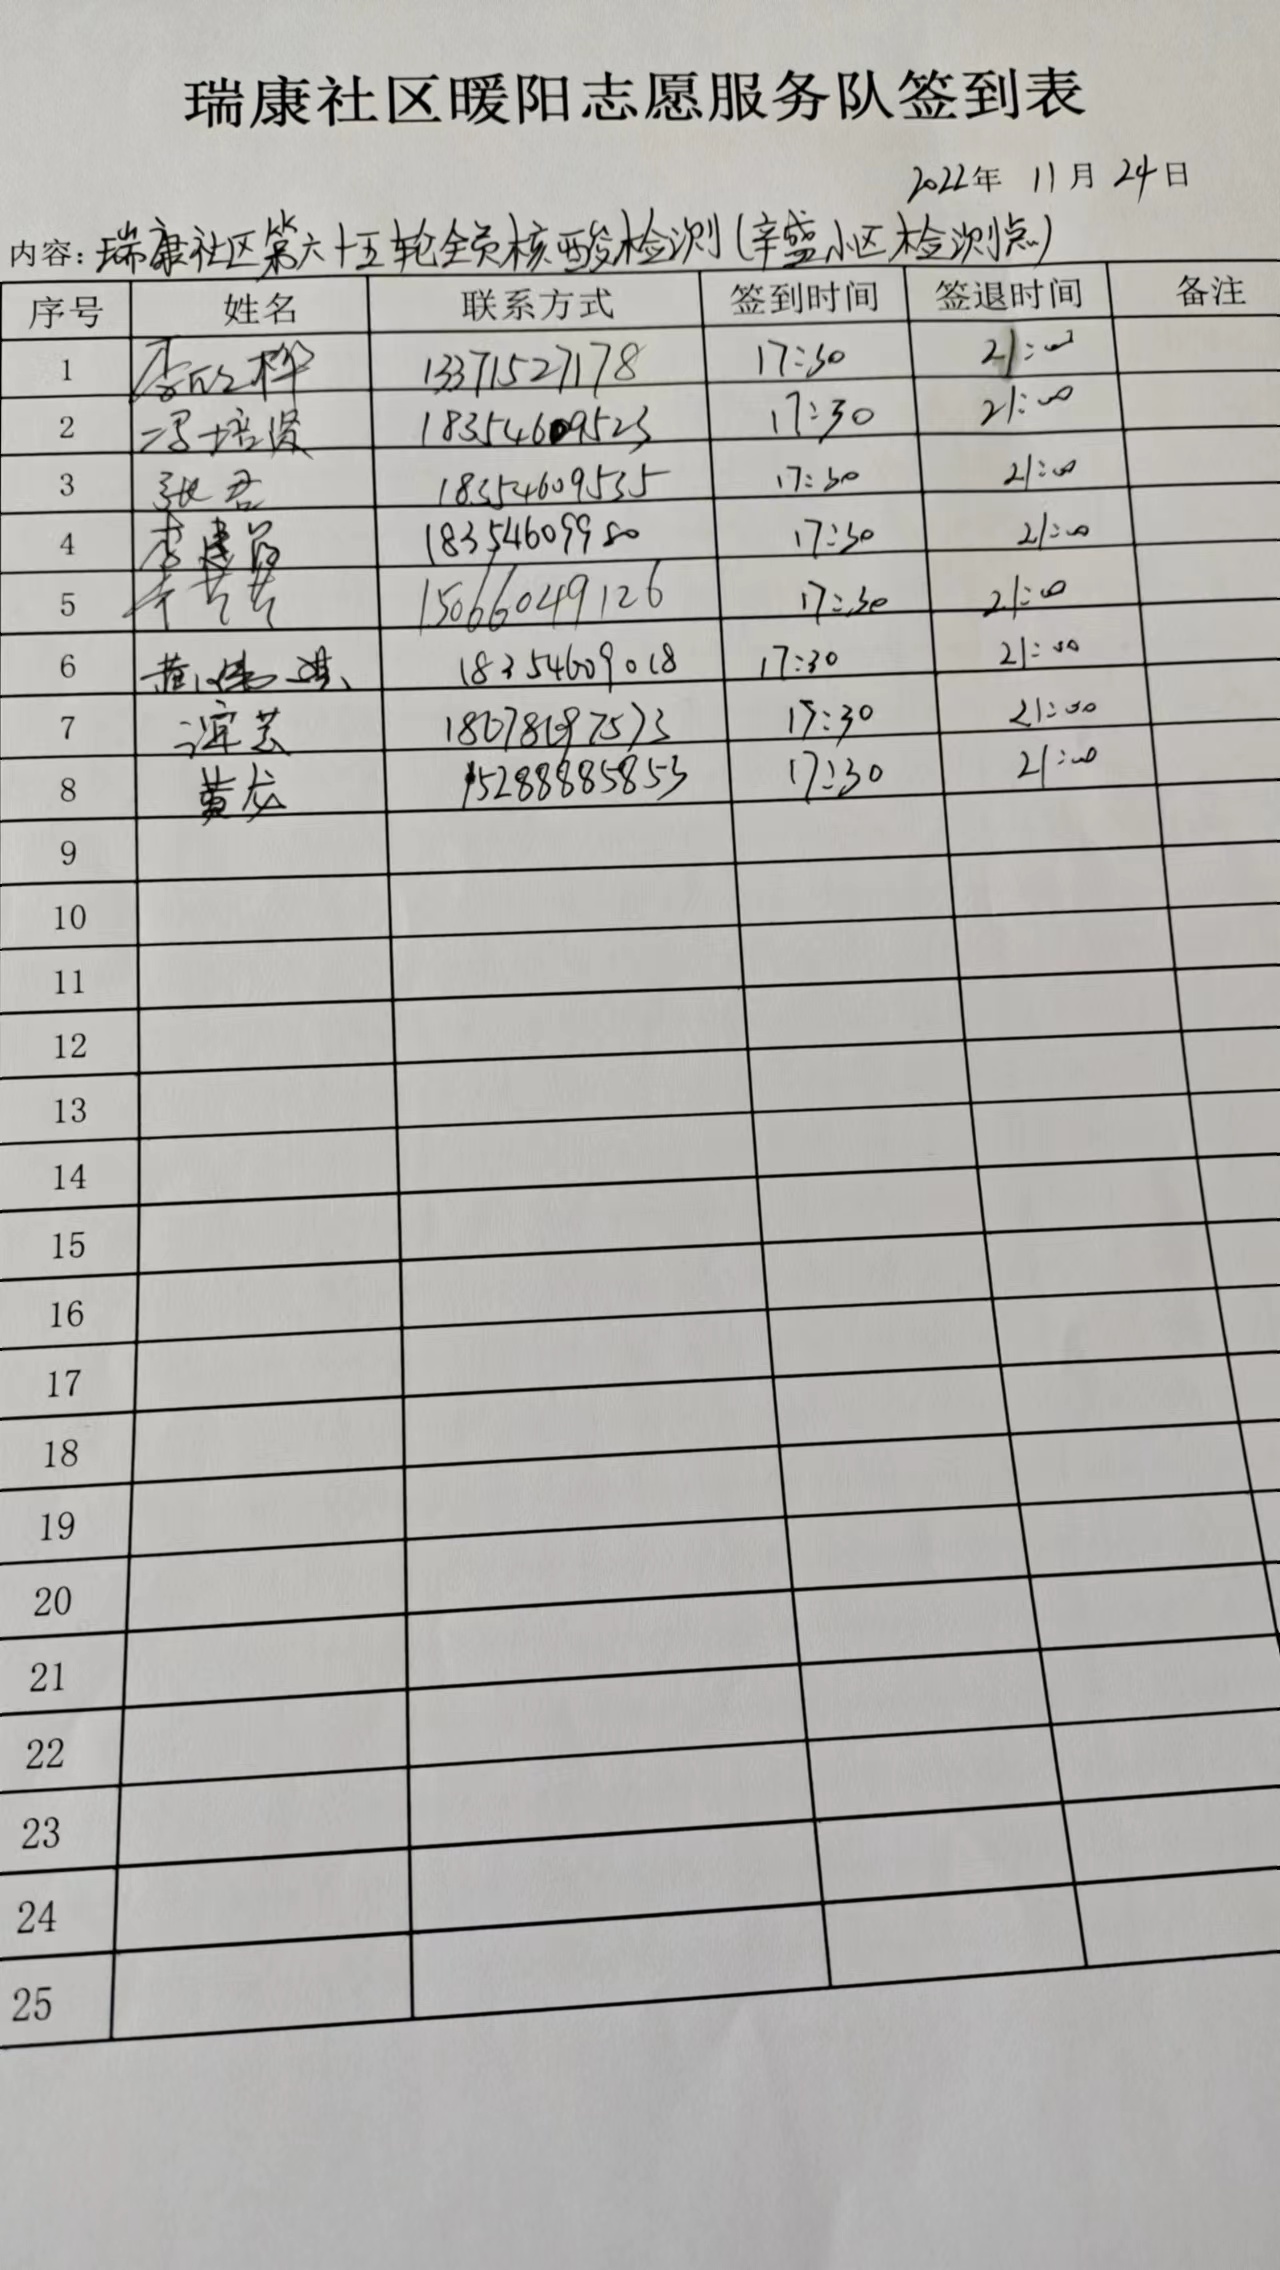 瑞康社区暖阳志愿服务队签到表
2022年 11月 24日
内容：瑞康社区第六十五轮全员核酸检测（辛盛小区检测点）
序号 姓名 联系方式 签到时间 签退时间 备注
1 13371527178 17:30 21:00
2 冯培贤 18354609523 17:30 21:00
3 张君 18354609535 17:30 21:00
4 18354609980 17:30 21:00
5 15066049126 17:30 21:00
6 18354609018 17:30 21:00
7 17:30 21:00
8 黄龙 15288885853 17:30 21:00
9
10
11
12
13
14
15
16
17
18
19
20
21
22
23
24
25